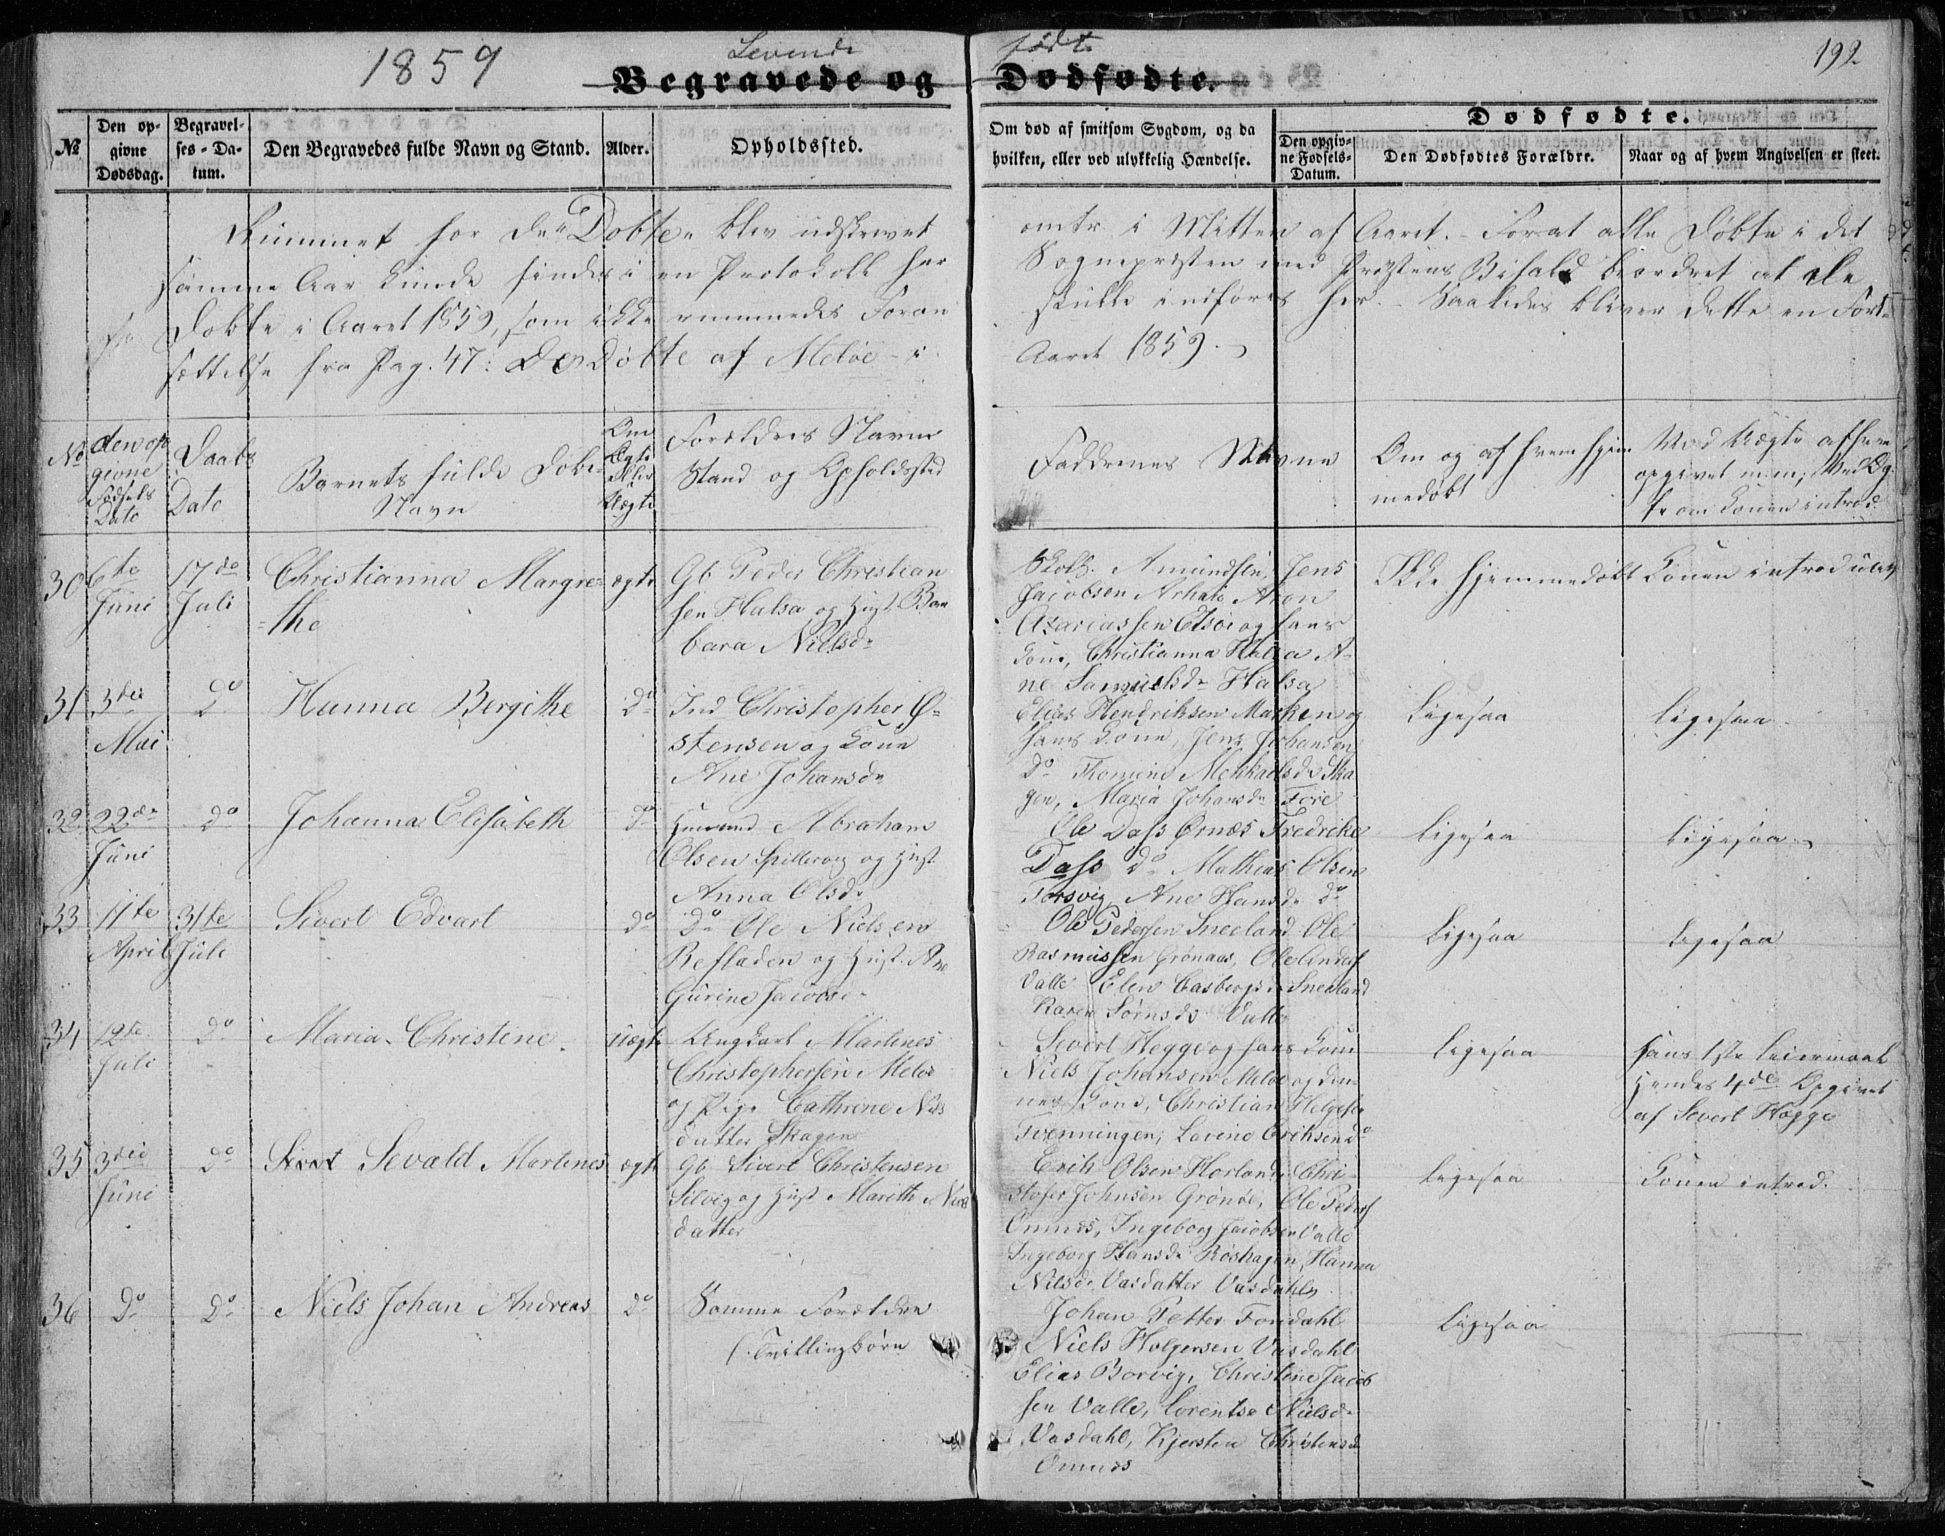 1859
Levende
født
192
Begravede og Dødfødte.
Dødfødte.
No
Den opgivne Dødsdag.
Begravelses-Datum.
Den Begravedes fulde Navn og Stand.
Alder.
Opholdssted.
Om død af smitsom Sygdom, og da hvilken, eller ved ulykkelig Hændelse.
Den opgivne Fødsels-Datum.
Den Dødfødtes Forældre.
Naar og af hvem Angivelsen er skeet.
Rummet for de Døbte blev udskrevet
omtr. i Mitten af Aaret. - Forat alle Døbte i det
samme Aar kunde findes i en Protokoll har
Sognepræsten med Provstens Bifald beordret at de
Døbte i Aaret 1859, som ikke rummedes Foran
skulle indføres her. - Saaledes bliver dette en Fort-
sættelse fra Pag. 47: De Døbte af Meløe - i
Aaret 1859.
No
den opgivne Fødsels Dato
Daabs Dato
Barnets fulde Døbe-
Navn
Om Ægte Eller Uægte
Forældres Navne
Stand og Opholdssted
Faddernes Navne
Om og af hvem hjem
medøbt
Ved Uægte af hvem
opgivet
om Konen introd.
30
6te Juni
17de Juli
Christianna Margre-
the
ægte
Gb Peder Christian
sen Halsa og Hust. Bar
bara Nielsdr
Skolh. Amundsen, Jens
Jacobsen Aron
Azariassen og hans
Kone, Christianna Halsa A-
ne Samuelsdr Halsa
Ikke hjemmedøbt
Konen introduceret
31
3die Mai
Do
Hanna Bergithe
Do
Ind Christopher Ø-
stensen og Kone
Ane Johansdr
Elias Hendriksen Marken og
hans Kone, Jens Johansen
Do Thomine Mekkaelsdr Ska
gen, Maria Johansdr Fore
Ligesaa
Ligesaa
32
22de Juni
Do
Johanna Elisabeth
Do
Huusmd Abraham
Olsen Spildervog og Hust
Anna Olsdr
Ole Dass Ørnæs Fredrike
Dass Do Mathias Olsen
Torsvig Ane Hansdr do
Ligesaa
Ligesaa
33
11te April
31te Juli
Sivert Edvart
Do
Do Ole Nielsen
Refladen og Hust. Ane
Gurine Jacobsd.
Ole Pedersen Sneeland Ole
Rasmussen Grønaas, Ole Anders
Valle Elen Casbergsdr Sneeland
Karen Sørnsdr Valle
Ligesaa
Ligesaa
34
12te Juli
Do
Maria Christene
Uægte
Ungkarl Martines
Christophersen Meløe
og Pige Cathrene Nils
datter Skagen
Sivert Hegge og hans Kone
Niels Johansen Meløe og den-
nes Kone, Christian Helgesen
Tvenningen, Lovine Eriksen do
Ligesaa
Hans 1ste Leiermaal
Hendes 4de Opgivet
af Sivert Hegge
35
3die Juni
Do
Sevald Martines
ægte
Gb Sivert Christensen
Selvig og Hust Mareth Niels
datter
Erik Olsen Horland Chri-
stofer Johnsen Grønøe, Ole Peders
Omnes, Ingeborg Jacobsen Valle
Ingeborg Hansdr Røshagen, Hanna
Nilsdr Vasdatter Vasdahls
Ligesaa
Konen introd.
36
Do
Do
Niels Johan Andreas
Do
Samme Forældre
(: Tvillingbørn
Johan Petter Fondahl
Niels Holgersen Vasdahl
Elias Borvig, Christine Jacob
sen Valle, Lorentse Nielsdr
Vasdahl, Kjersten Christensdr
Omnes
Ligesaa